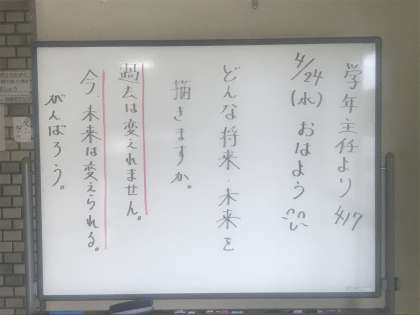 学年主任より 4/17
4/24(水) おはよう
どんな将来・未来を
描きますか。
過去は変えれません。
今 未来は変えられる。
がんばろう。